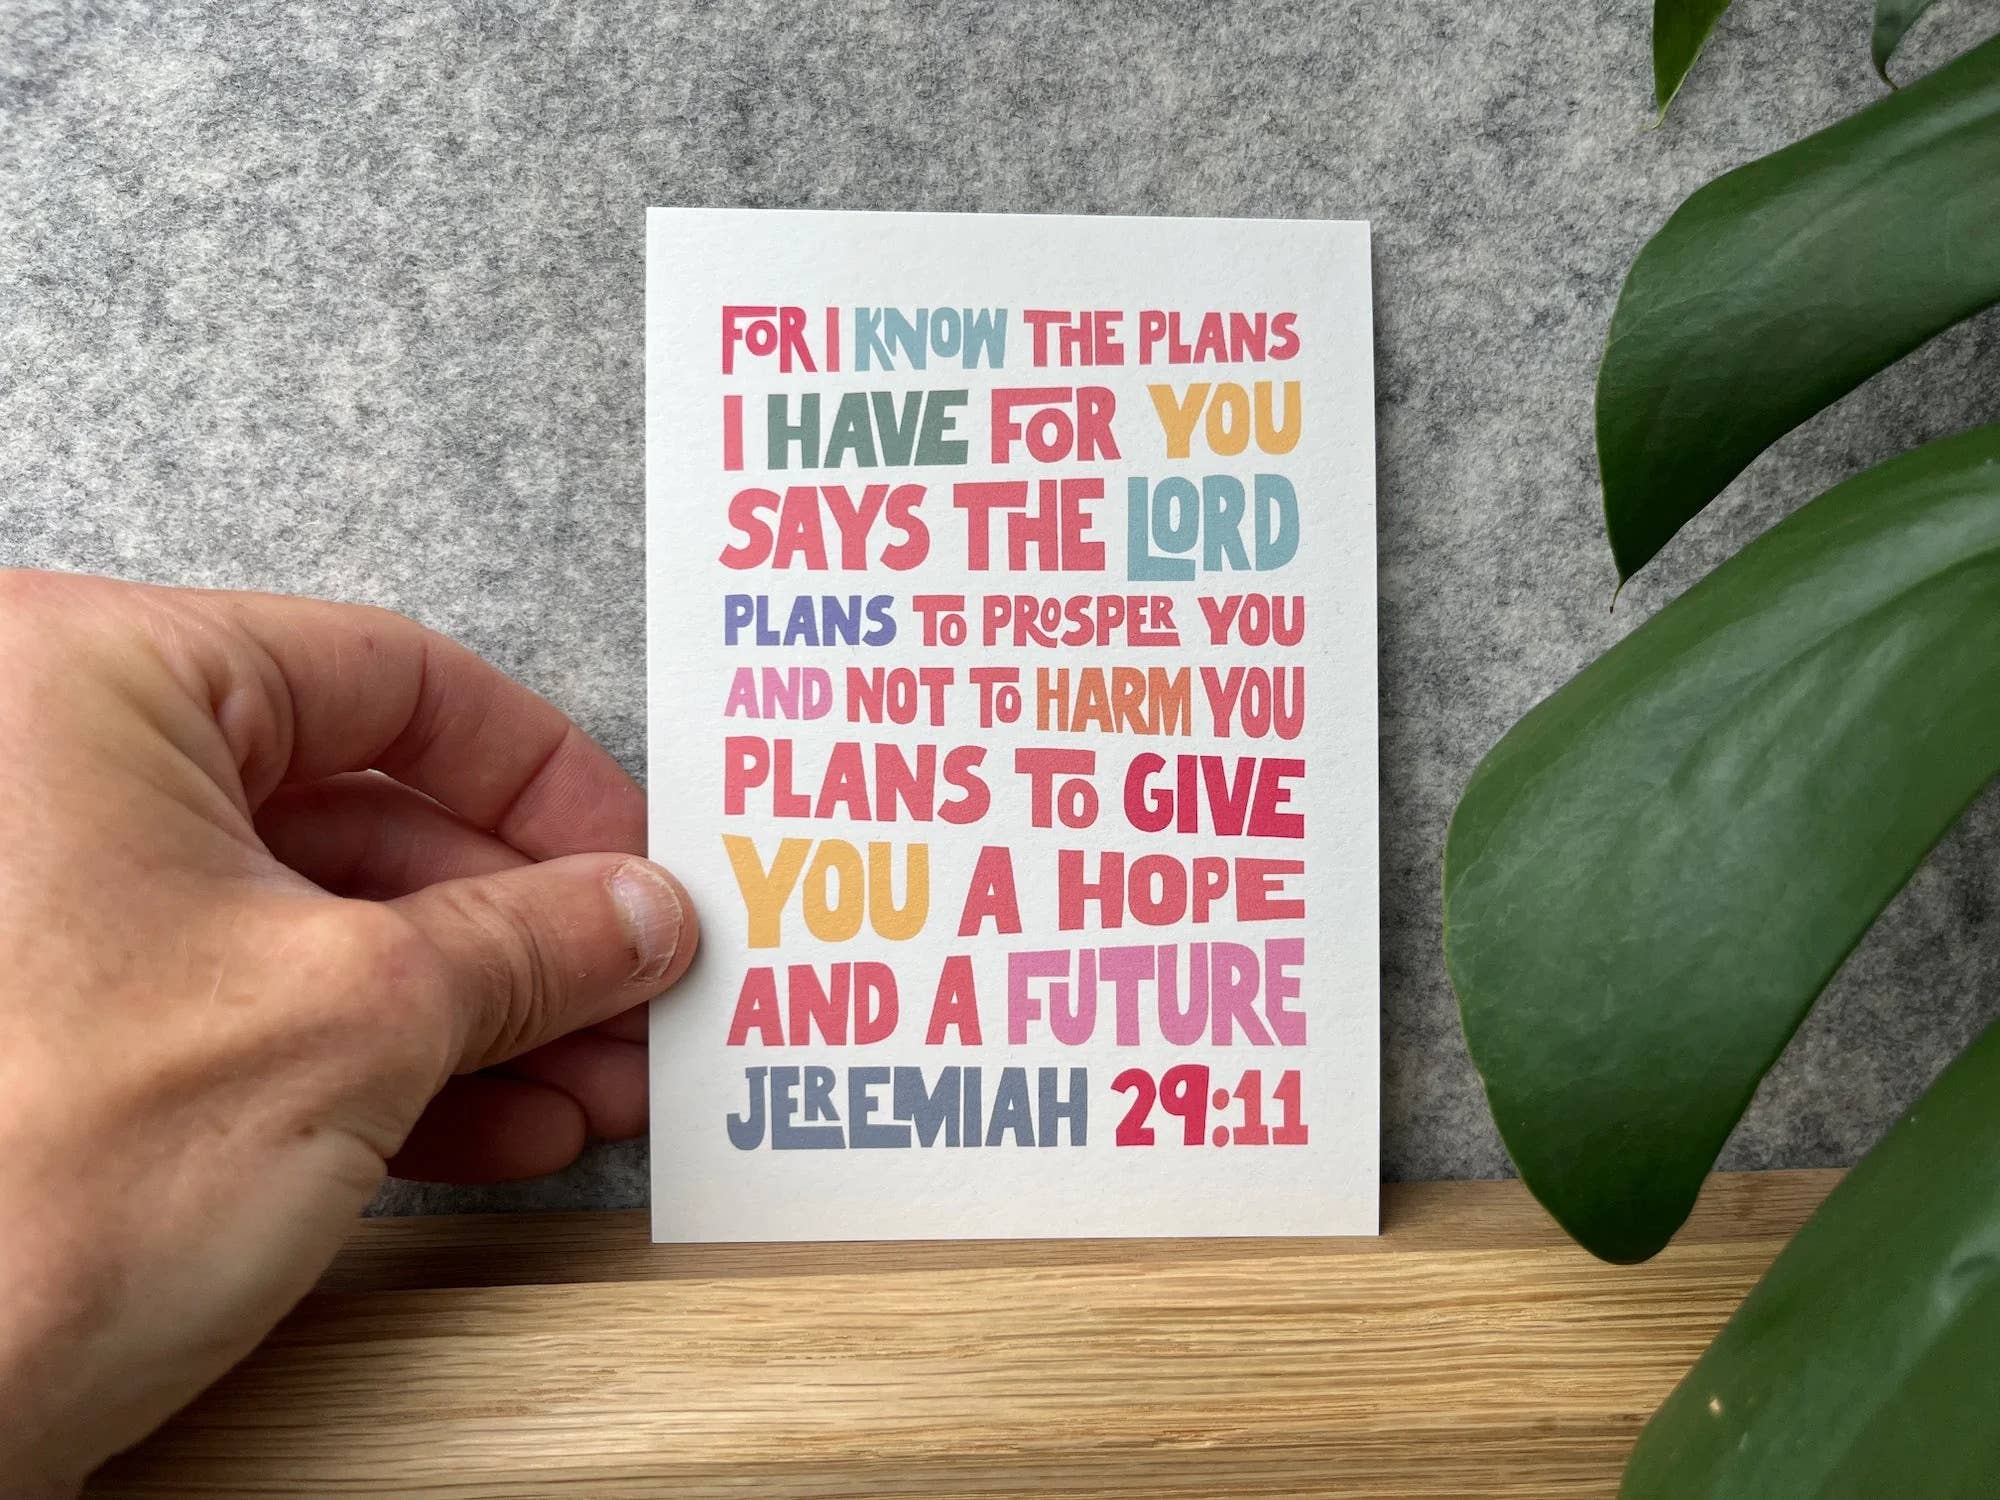 FOR I KNOW THE PLANS
I HAVE FOR YOU
SAYS THE LORD
PLANS TO PROSPER YOU
AND NOT TO HARM YOU
PLANS TO GIVE
YOU A HOPE
AND A FUTURE
JEREMIAH 29:11